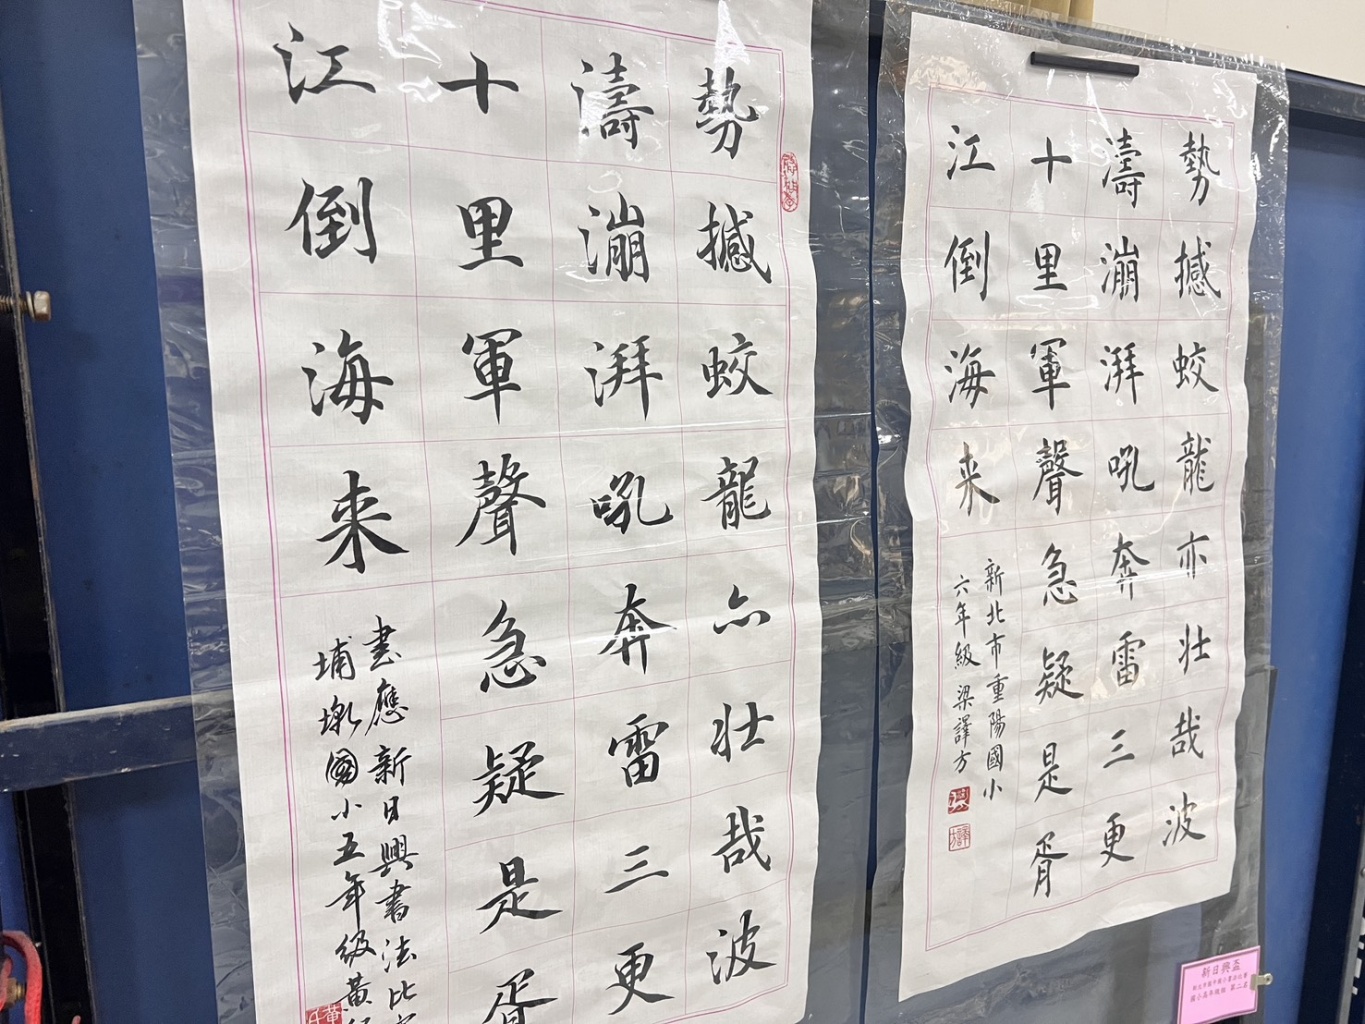 勢撼蛟龍亦壯哉波
濤漰湃吼奔雷三更
十里軍聲急疑是胥
江倒海来
新北市重陽國小
六年級 梁譯方
勢撼蛟龍亦壯哉波
濤漰湃吼奔雷三更
十里軍聲急疑是胥
江倒海来
書應新日興書法比
埔墘國小五年級黃
新日興盃
國小高年級組 第二名